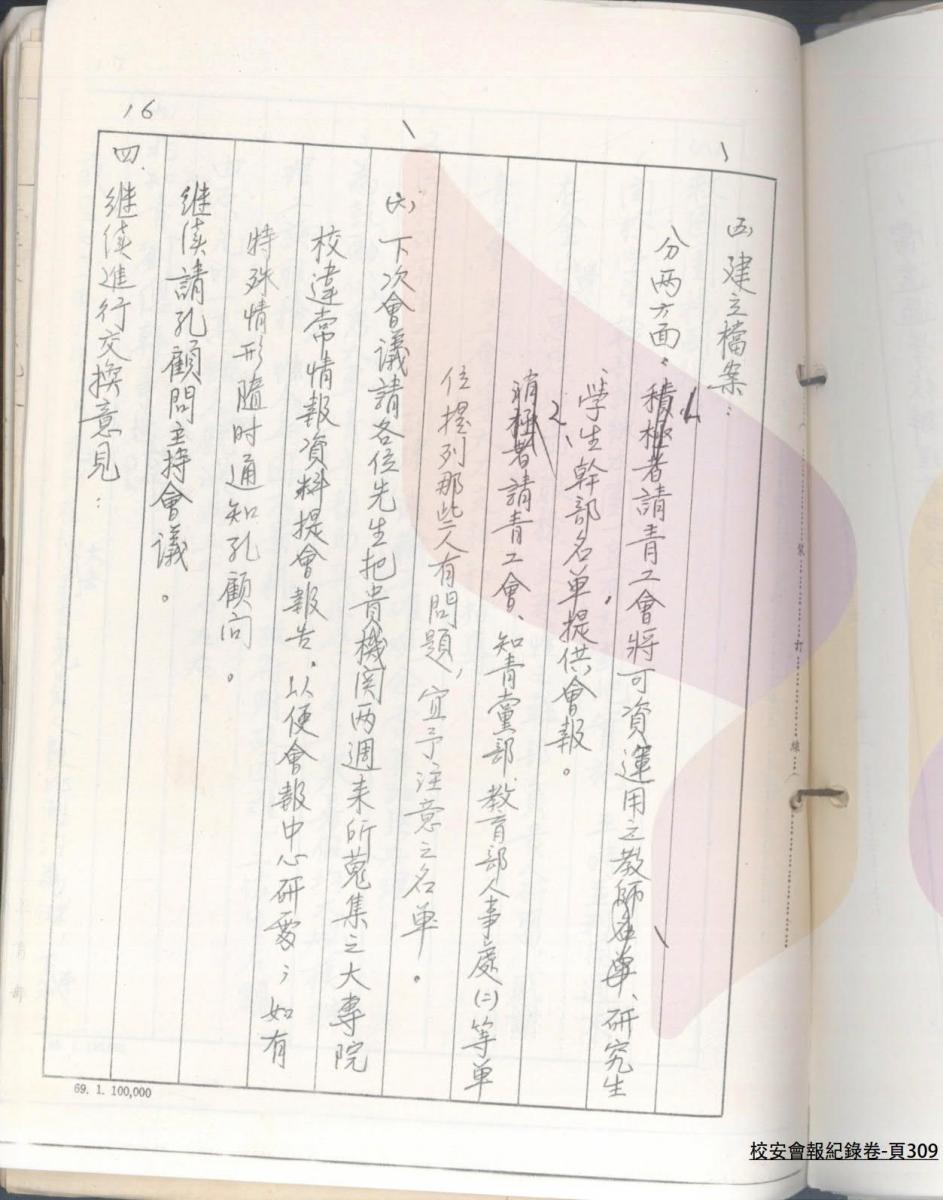 16
㈤建立檔案：
分兩方面。1.積極者請青工會將可資運用之教師名單、研究生
、學生幹部名單提供會報。
2、消極者請青工會、知青黨部、教育部人事處㈡等單
位提列那些人有問題，宜予注意之名單。
㈥下次會議請各位先生把貴機関两週来所蒐集之大專院
校違常情報資料提會報告，以便會報中心研處；如有
特殊情形隨時通知孔顧问。
继续請孔顧問主持會議。
四、继续進行交換意見：
裝
訂
線
69. 1. 100,000
校安會報紀錄卷-頁309